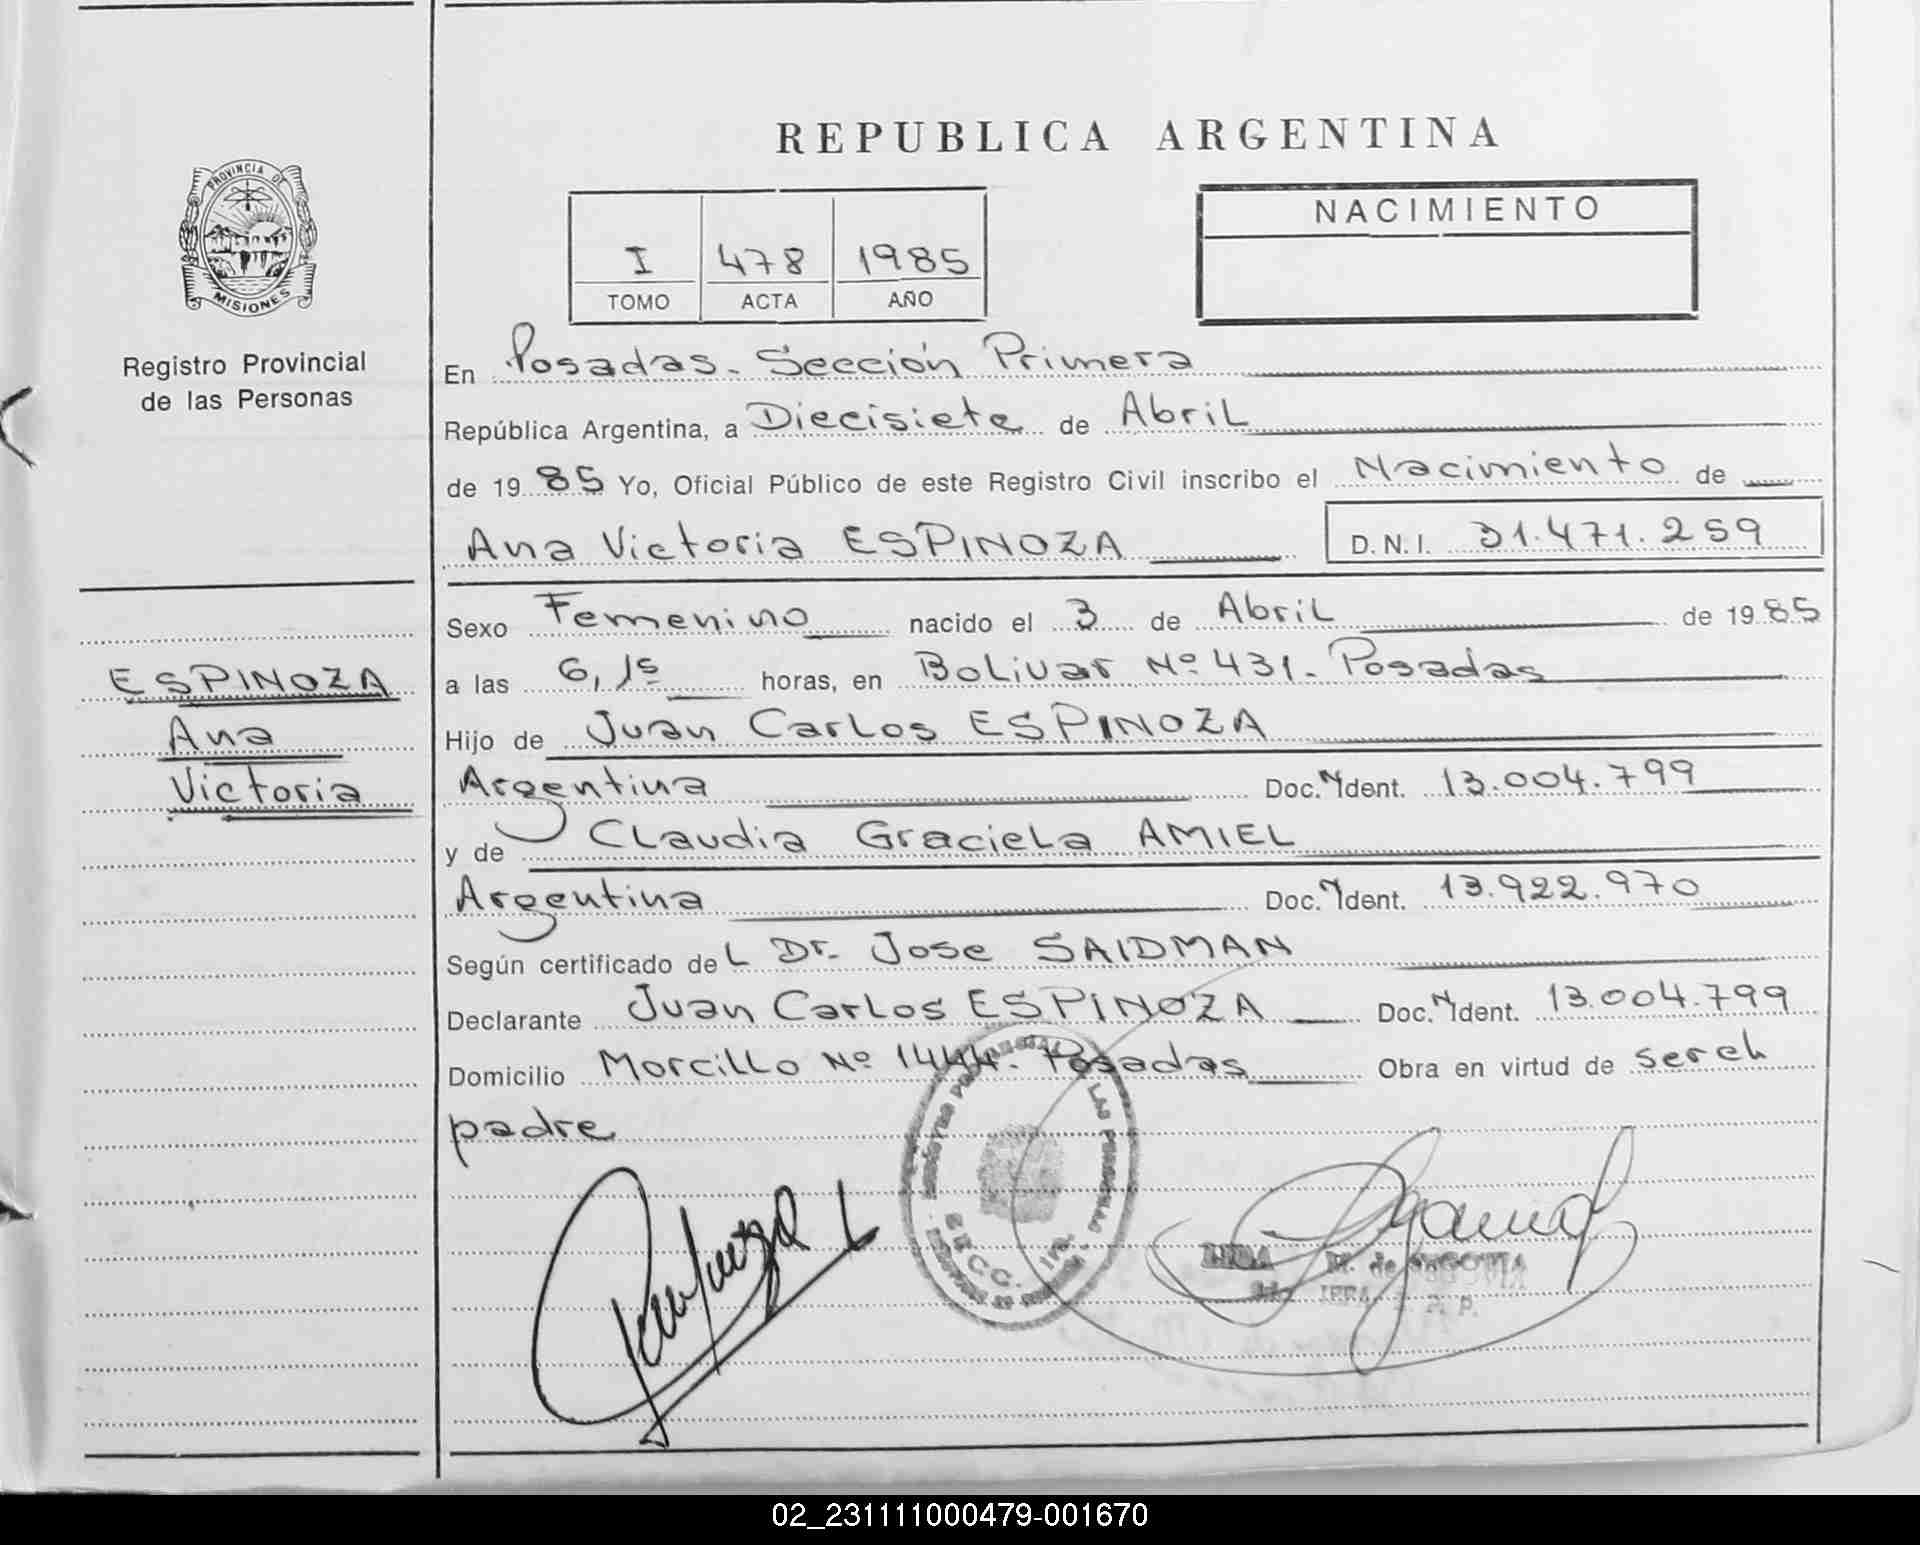 REPUBLICA ARGENTINA
PROVINCIA DE
MISIONES
Registro Provincial
de las Personas
I 478 1985
TOMO ACTA AÑO
NACIMIENTO
En Posadas. Sección Primera
República Argentina, a Diecisiete de Abril
de 1985 Yo, Oficial Público de este Registro Civil inscribo el Nacimiento de
Ana Victoria ESPINOZA D.N.I. 31.471.259
Sexo Femenino nacido el 3 de Abril de 1985
a las 6,15 horas, en Bolivar Nº 431. Posadas
Hijo de Juan Carlos ESPINOZA
Argentina Doc. N Ident. 13.004.799
y de Claudia Graciela AMIEL
Argentina Doc. N Ident. 13.922.970
Según certificado del Dr. Jose SAIDMAN
Declarante Juan Carlos ESPINOZA Doc. N Ident. 13.004.799
Domicilio Morcillo Nº 1444. Posadas Obra en virtud de ser el
padre
ESPINOZA
Ana
Victoria
LAS PERSONAS
SECC. 1ra.
M. de SEGOVIA
02_231111000479-001670